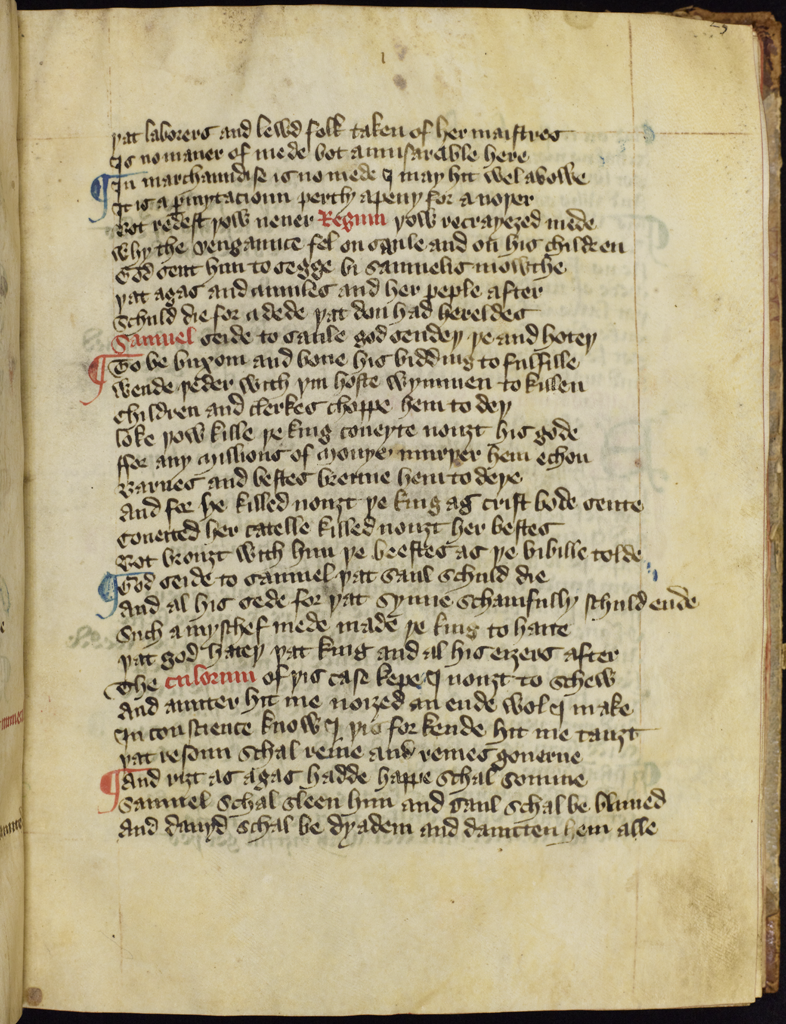 þat laborers and lewd folk taken of her maistres
Is no maner of mede bot a mesurable here
¶ In marchaundise is no mede I may hit wel avowe
It is a pmytacioun pertly a peny for a noþer
Bot redest þow neuer Regum þow recrayeȝed mede
Why the vengaunce fel on saule and on his children
God sent him to segge bi samuelis mowthe
þat agag and amales and her peple after
Schuld die for a dede þat don had her eldes
Samuel seide to saule god sendeþ þe and hoteþ
¶ To be buxom and bone his bidding to fulfille
Wende þeder with þin hoste wymmen to killen
Children and clerkes choppe hem to deþ
loke þow kille þe king coueyte nouȝt his gode
ffor any Millions of Monye murþer hem echon
Barnes and bestes brenne hem to deþe
And for he killed nouȝt þe king as crist bode sente
Coueited her catelle killed nouȝt her bestes
Bot brouȝt with him þe beestes as þe bibille tolde
¶ God seide to samuel þat saul schuld die
And al his sede for þat synne schamfully schuld ende
Such a myschef mede made þe king to haue
þat god hateþ þat king and al his eiȝers after
The culorum of þis case kepe I nouȝt to schew
And aunter hit me noiȝed an ende wol I make
In conscience know I þis for kende hit me tauȝt
þat resoun schal reine and remes gouerne
¶ And riȝt as agag hadde happe schal somme
Samuel schal sleen him and saul schal be blamed
And dauyd schal be dyadem and daunten hem alle